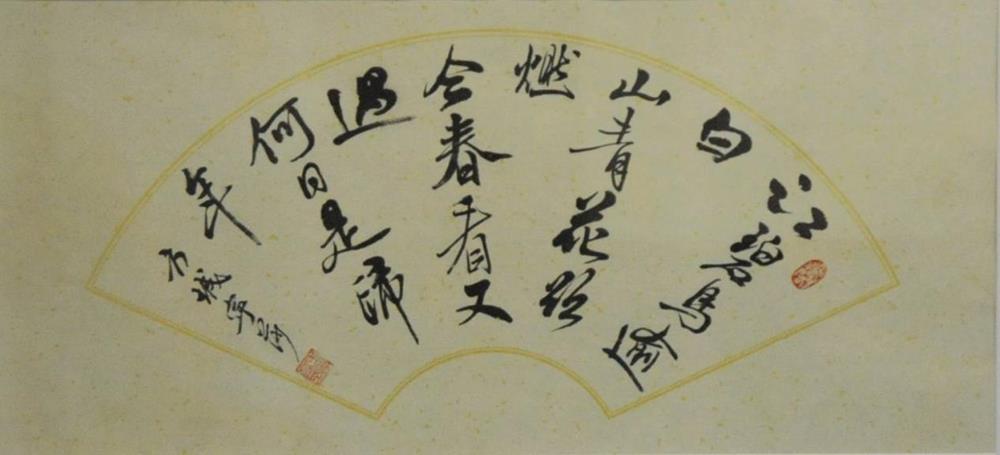 江碧鳥逾
白
山青花欲
燃
今春看又
過
何日是歸
年
方城